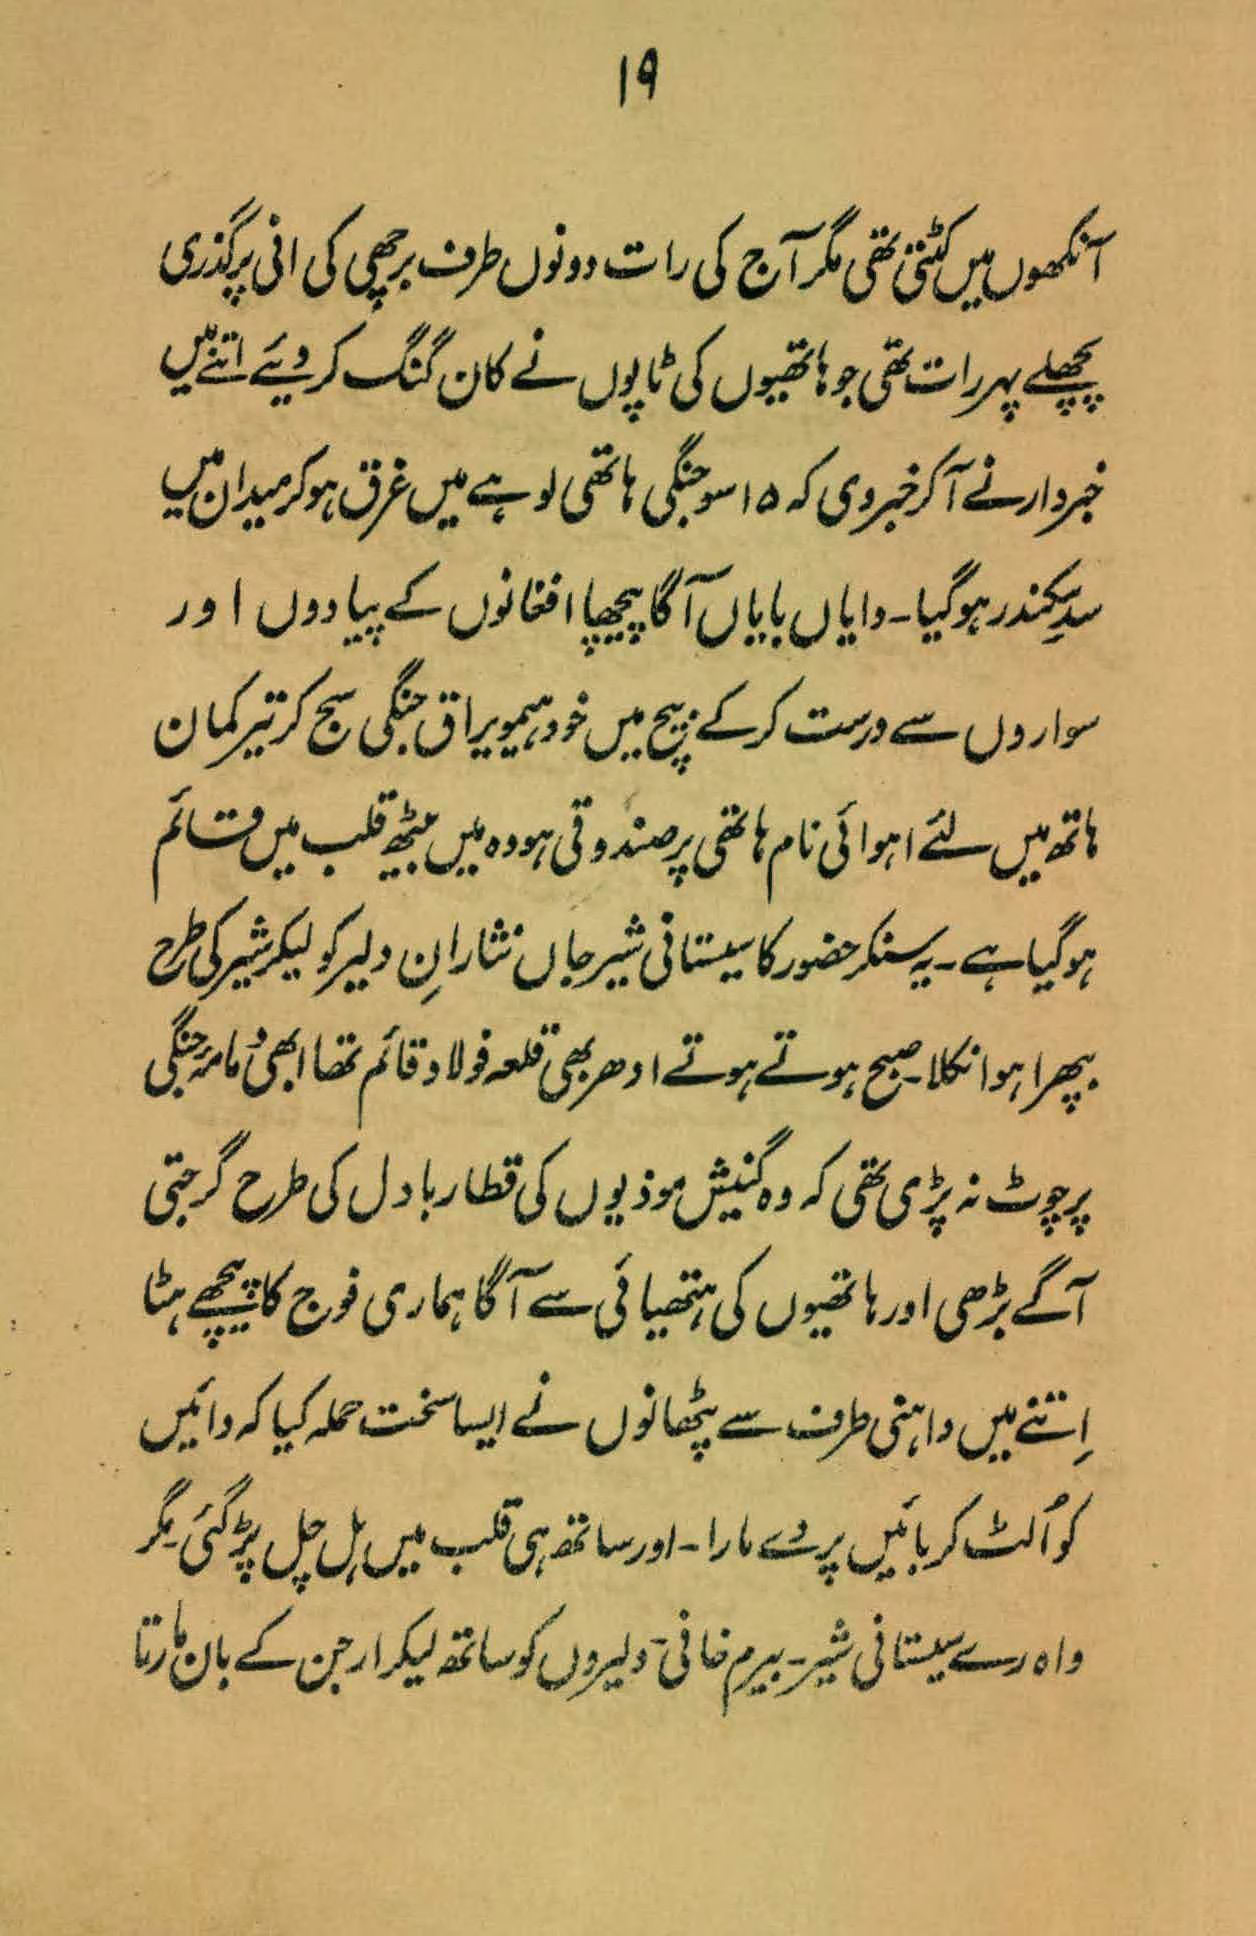 ۱۹
آنکھوں میں کٹتی تھی مگر آج کی رات دونوں طرف برچھی کی انی پر گذری
پچھلے پہر رات تھی جو ہاتھیوں کی ٹاپوں نے کان گنگ کر دیئے اتنے میں
خبردار نے آکر خبر دی کہ ۱۵ سو جنگی ہاتھی لوہے میں غرق ہو کر میدان میں
سدِ سکندر ہو گیا۔ دایاں بایاں آگا پیچھا افغانوں کے پیادوں اور
سواروں سے درست کر کے بیچ میں خود ہیمو یراق جنگی سج کر تیر کمان
ہاتھ میں لئے ہوائی نام ہاتھی پر صندوقی ہودہ میں بیٹھ قلب میں قائم
ہو گیا ہے۔ یہ سنکر حضور کا سیستانی شیر جاں نثارانِ دلیر کو لیکر شیر کی طرح
بپھرا ہوا نکلا۔ صبح ہوتے ہوتے ادھر بھی قلعہ فولاد قائم تھا ابھی دُمامۂ جنگی
پر چوٹ نہ پڑی تھی کہ وہ گنیش موذیوں کی قطار بادل کی طرح گرجتی
آگے بڑھی اور ہاتھیوں کی ہتھیائی سے آگا ہماری فوج کا پیچھے ہٹا
اِتنے میں داہنی طرف سے پٹھانوں نے ایسا سخت حملہ کیا کہ دائیں
کو اُلٹ کر بائیں پر دے مارا۔ اور ساتھ ہی قلب میں ہل چل پڑ گئی۔ مگر
واہ رے سیستانی شیر۔ بیرم خانی دلیروں کو ساتھ لیکر ارجن کے بان مارتا